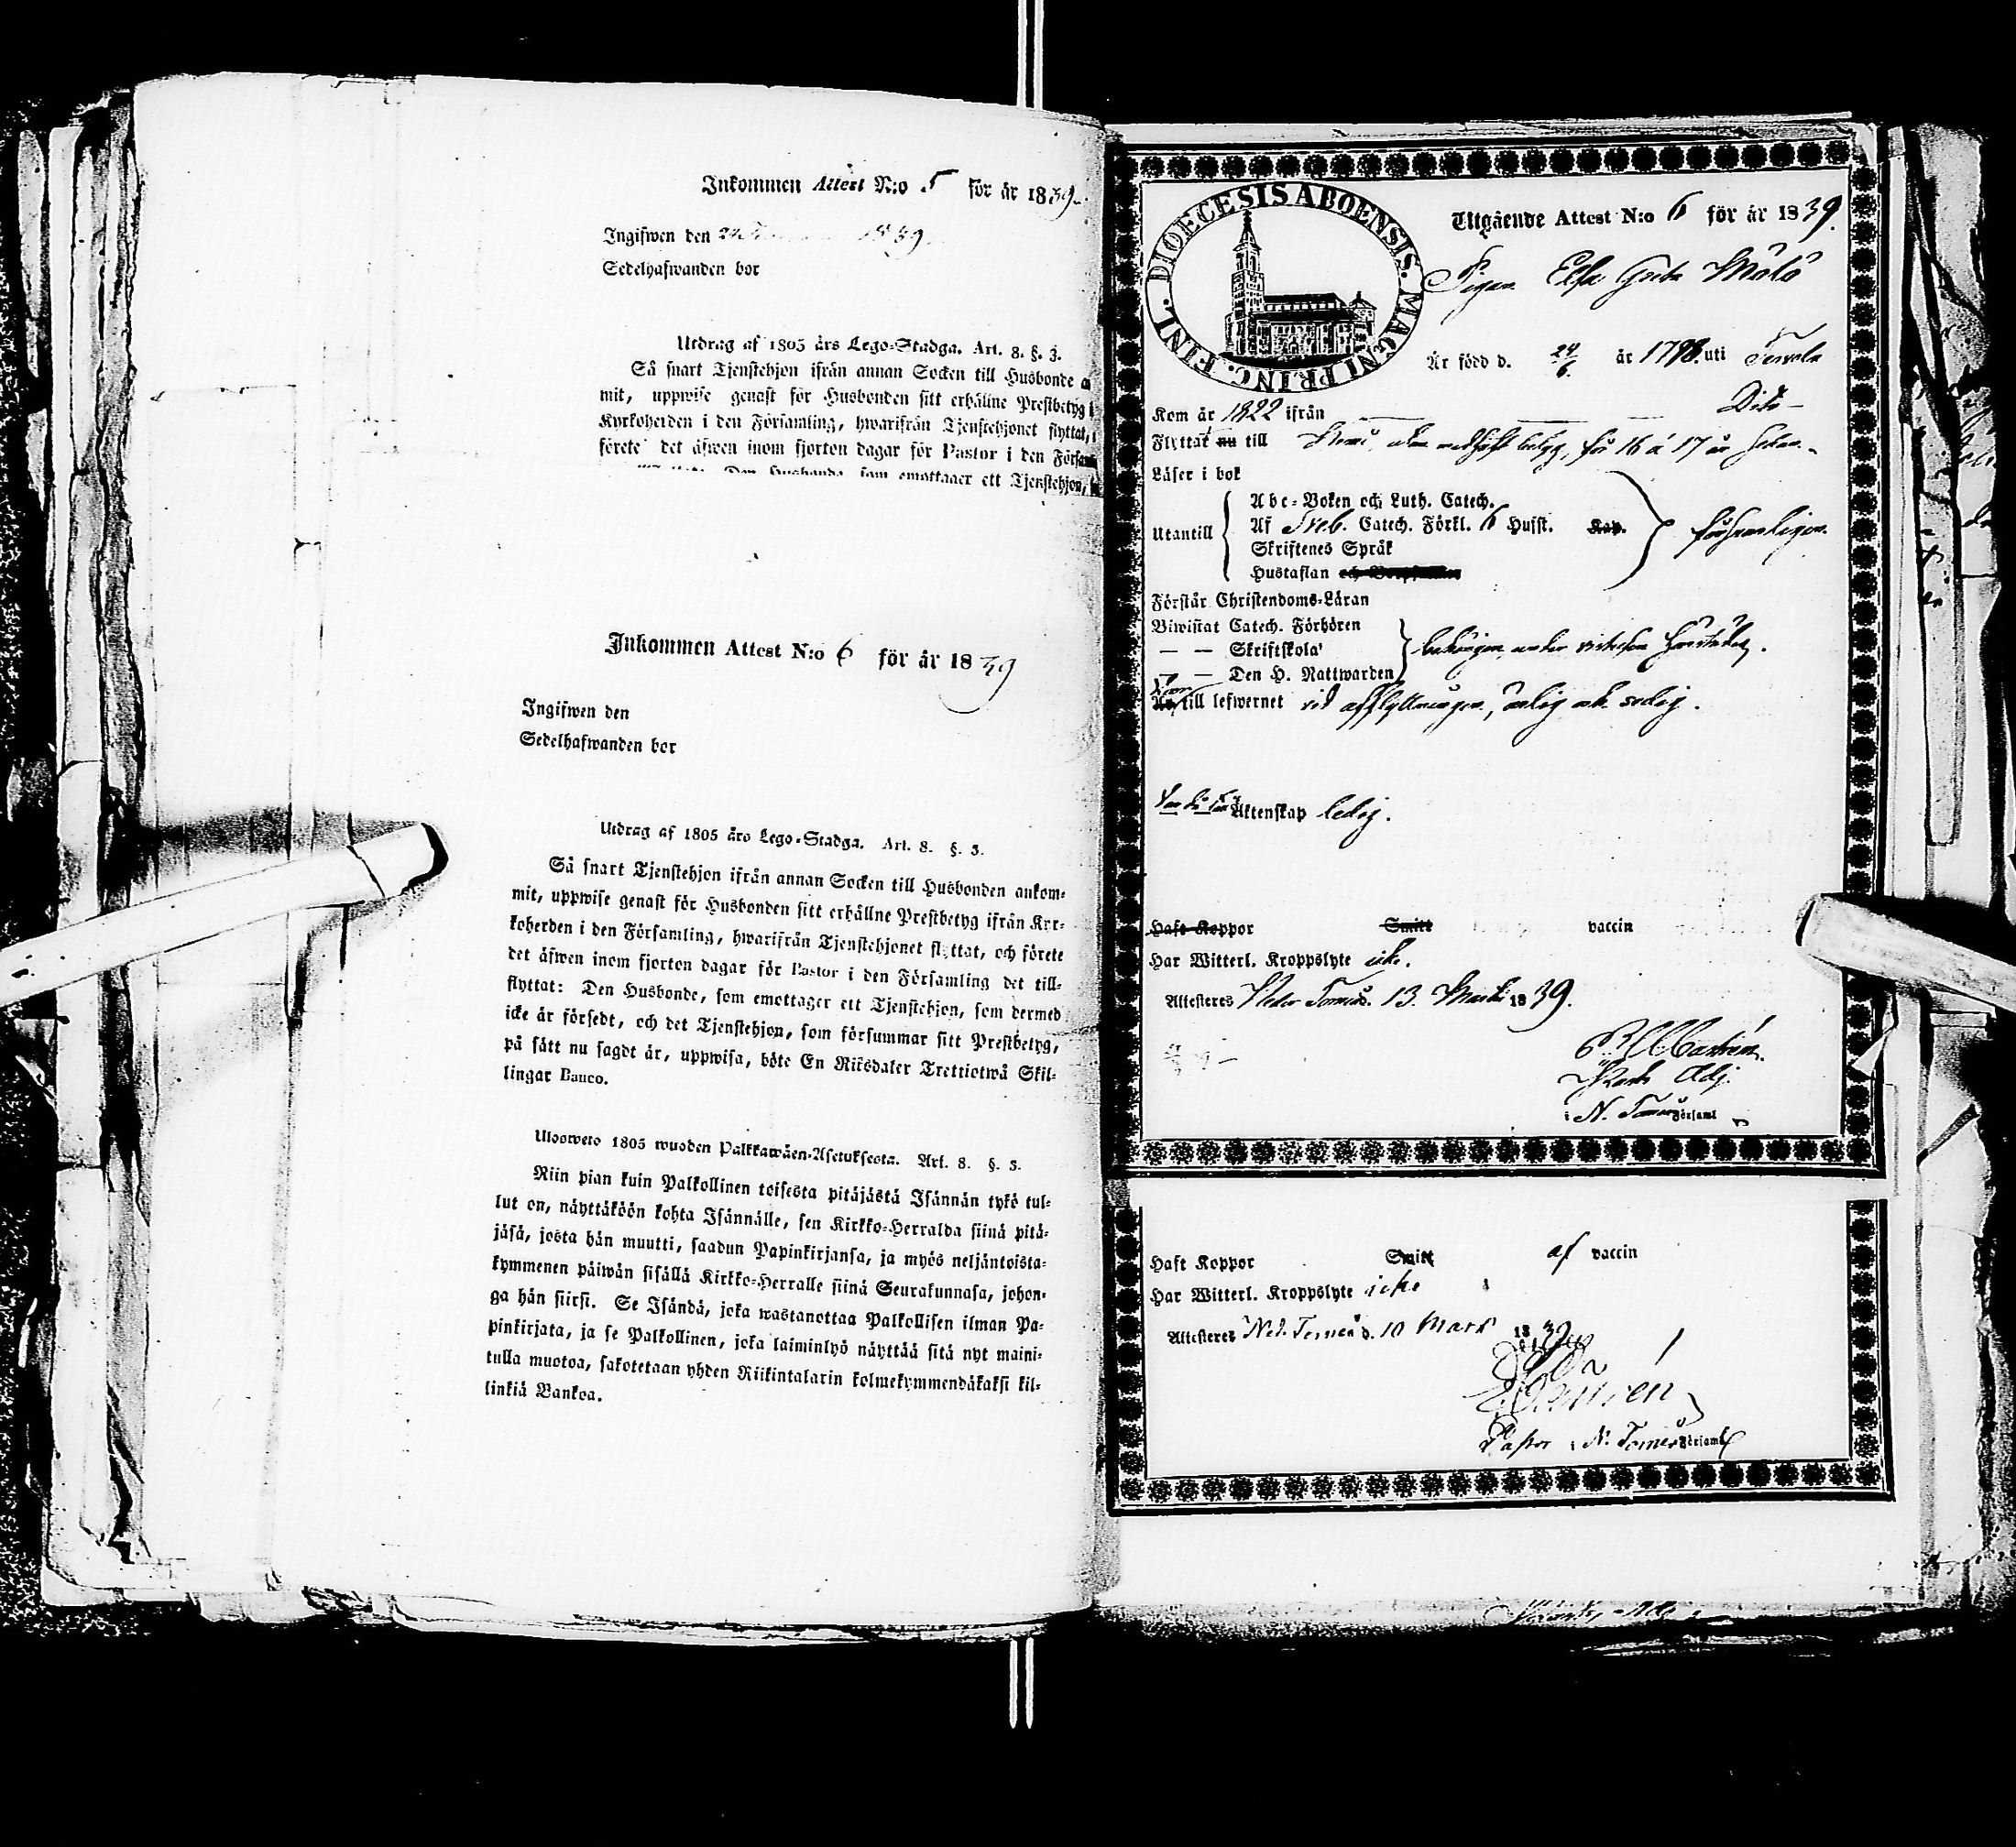 Inkommen Attest N:o 5 för år 1839.
Ingifwen den 24 1839.
Sedelhafwanden bor
Utdrag af 1805 års Lego-Stadga. Art. 8. §. 3.
Så snart Tjenstehjon ifrån annan Socken till Husbonde
mit, uppwise genast för Husbonden sitt erhållne Prestbetyg
Kyrkoherden i den Församling, hwarifrån Tjenstehjonet flyttat,
förete det äfwen inom fjorton dagar för Pastor i den
Den Husbonde som emottager ett Tjenstehjon,
Inkommen Attest N:o 6 för år 1839
Ingifwen den
Sedelhafwanden bor
Utdrag af 1805 års Lego-Stadga. Art. 8. §. 3.
Så snart Tjenstehjon ifrån annan Socken till Husbonden ankom-
mit, uppwise genast för Husbonden sitt erhållne Prestbetyg ifrån Kyr-
koherden i den Församling, hwarifrån Tjenstehjonet flyttat, och förete
det äfwen inom fjorton dagar för Pastor i den Församling det till-
flyttat: Den Husbonde, som emottager ett Tjenstehjon, som dermed
icke är försedt, och det Tjenstehjon, som försummar sitt Prestbetyg,
på sätt nu sagdt är, uppwisa, böte En Riksdaler Trettiotwå Skil-
lingar Banco.
Ulosweto 1805 wuoden Palkkawäen-Asetuksesta. Art. 8. §. 3.
Niin pian kuin Palkollinen toisesta pitäjästä Isännän tykö tul-
lut on, näyttäköön kohta Isännälle, sen Kirkko-Herralda siinä pitä-
jäsä, josta hän muutti, saadun Papinkirjansa, ja myös neljäntoista-
kymmenen päiwän sisällä Kirkko-Herralle siinä Seurakunnasa, johon-
ga hän siirsi. Se Isändä, joka wastanottaa Palkollisen ilman Pa-
pinkirjata, ja se Palkollinen, joka laiminlyö näyttää sitä nyt maini-
tulla muotoa, sakotetaan yhden Riikintalarin kolmekymmendäkaksi kil-
linkiä Bankoa.
DIOECESIS ABOENSIS. MAGNI PRINC. FINL.
Utgående Attest N:o 6 för år 1839.
Pigan Elsa Greta
Är född d. 24/6. år 1798. uti Tervola
Kom år 1822 ifrån Dito
Flyttat nu till Kemi, utan medhaft betyg, för 16 á 17 år sedan.
Läser i bok
Utantill
Abc-Boken och Luth. Catech.
Af Sveb. Catech. Förkl. 6 Hufst. Kap.
Skriftenes Språk
Hustaflan
försvarligen.
Förstår Christendoms-Läran
Biwistat Catech. Förhören
— — Skriftskola
— — Den H. Nattwarden
till lefwernet vid afflyttningen, ärlig och sedig.
Äktenskap ledig.
Haft Koppor Smitt vaccin
Har Witterl. Kroppslyte icke.
Attesteres Neder Torneå d. 13. Martii 1839.
Castrén
Past. Adj.
i N. Torneå Församl
Haft Koppor Smitt af vaccin
Har Witterl. Kroppslyte icke
Attesteres Ned. Torneå d. 10 Mars 1839
Pastor i N. Torneå Församl